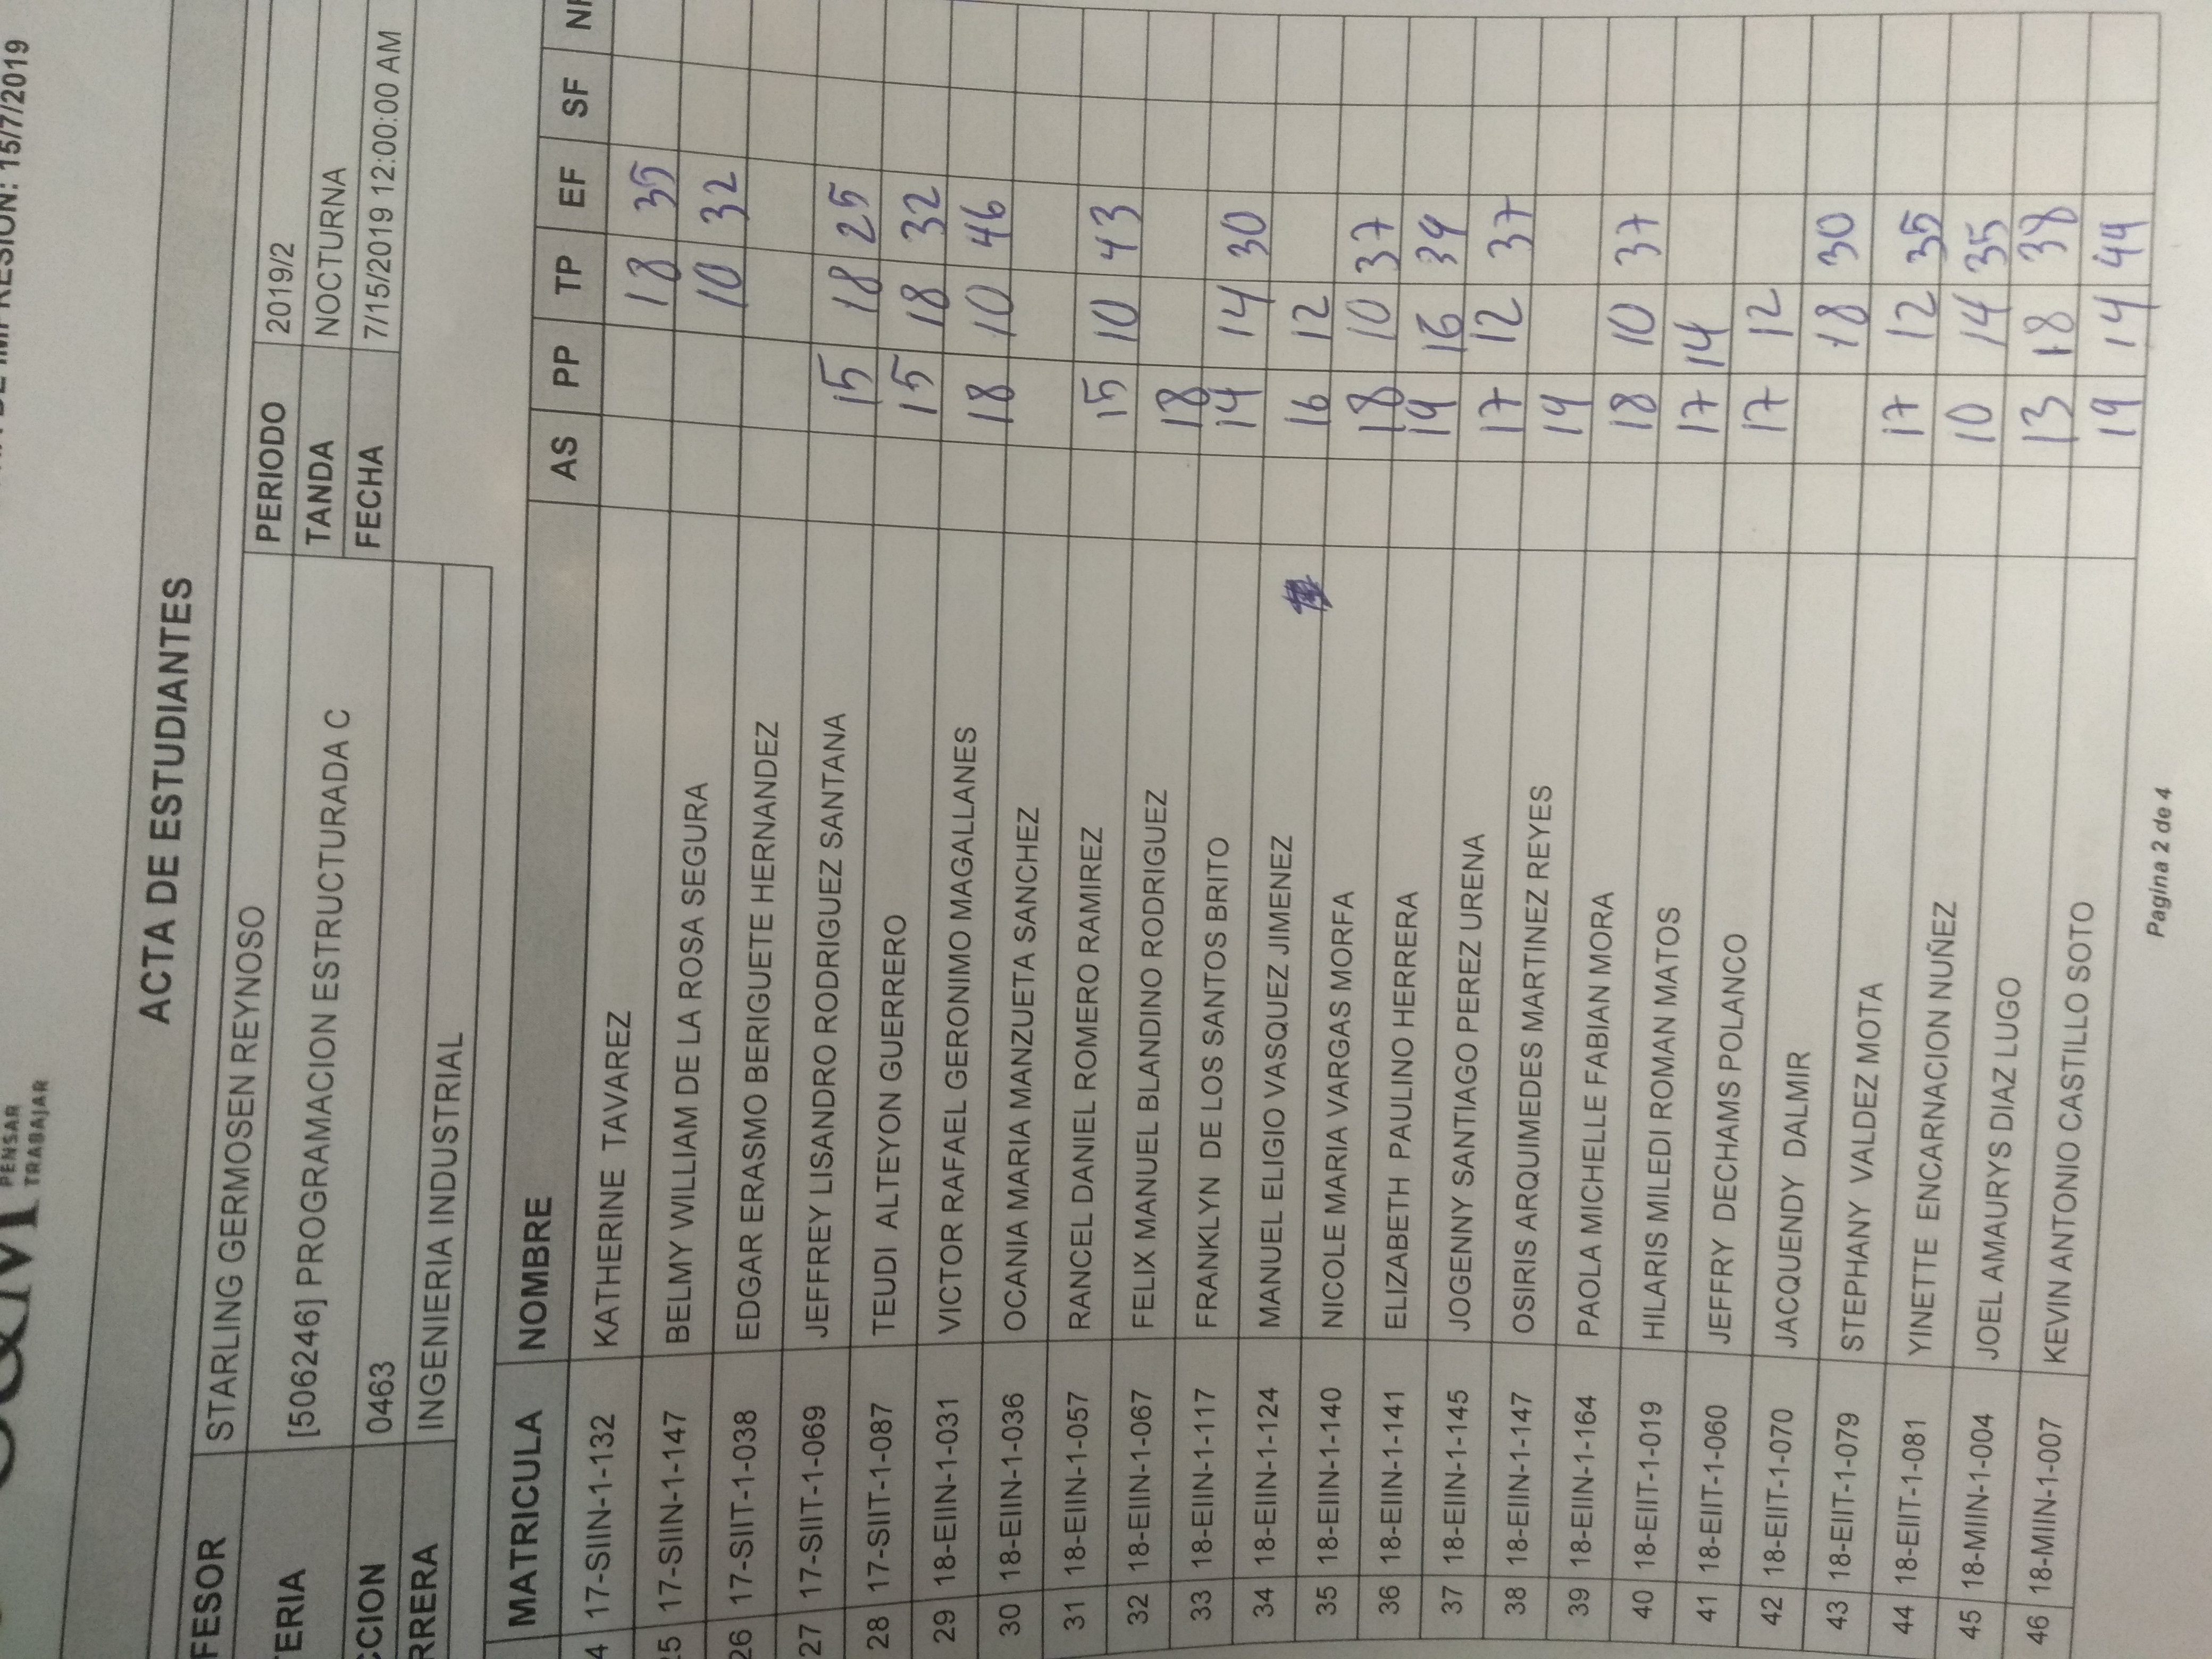 FECHA DE IMPRESION: 15/7/2019
PENSAR
TRABAJAR
ACTA DE ESTUDIANTES
FESOR STARLING GERMOSEN REYNOSO PERIODO 2019/2
TERIA [506246] PROGRAMACION ESTRUCTURADA C TANDA NOCTURNA
CCION 0463 FECHA 7/15/2019 12:00:00 AM
RRERA INGENIERIA INDUSTRIAL
MATRICULA NOMBRE AS PP TP EF SF NF
4 17-SIIN-1-132 KATHERINE TAVAREZ 18 35
25 17-SIIN-1-147 BELMY WILLIAM DE LA ROSA SEGURA 10 32
26 17-SIIT-1-038 EDGAR ERASMO BERIGUETE HERNANDEZ
27 17-SIIT-1-069 JEFFREY LISANDRO RODRIGUEZ SANTANA 15 18 25
28 17-SIIT-1-087 TEUDI ALTEYON GUERRERO 15 18 32
29 18-EIIN-1-031 VICTOR RAFAEL GERONIMO MAGALLANES 18 10 46
30 18-EIIN-1-036 OCANIA MARIA MANZUETA SANCHEZ
31 18-EIIN-1-057 RANCEL DANIEL ROMERO RAMIREZ 15 10 43
32 18-EIIN-1-067 FELIX MANUEL BLANDINO RODRIGUEZ 18
33 18-EIIN-1-117 FRANKLYN DE LOS SANTOS BRITO 14 14 30
34 18-EIIN-1-124 MANUEL ELIGIO VASQUEZ JIMENEZ 16 12
35 18-EIIN-1-140 NICOLE MARIA VARGAS MORFA 18 10 37
36 18-EIIN-1-141 ELIZABETH PAULINO HERRERA 19 16 39
37 18-EIIN-1-145 JOGENNY SANTIAGO PEREZ URENA 17 12 37
38 18-EIIN-1-147 OSIRIS ARQUIMEDES MARTINEZ REYES 19
39 18-EIIN-1-164 PAOLA MICHELLE FABIAN MORA 18 10 37
40 18-EIIT-1-019 HILARIS MILEDI ROMAN MATOS 17 14
41 18-EIIT-1-060 JEFFRY DECHAMS POLANCO 17 12
42 18-EIIT-1-070 JACQUENDY DALMIR 18 30
43 18-EIIT-1-079 STEPHANY VALDEZ MOTA 17 12 35
44 18-EIIT-1-081 YINETTE ENCARNACION NUÑEZ 10 14 35
45 18-MIIN-1-004 JOEL AMAURYS DIAZ LUGO 13 18 38
46 18-MIIN-1-007 KEVIN ANTONIO CASTILLO SOTO 19 14 44
Pagina 2 de 4